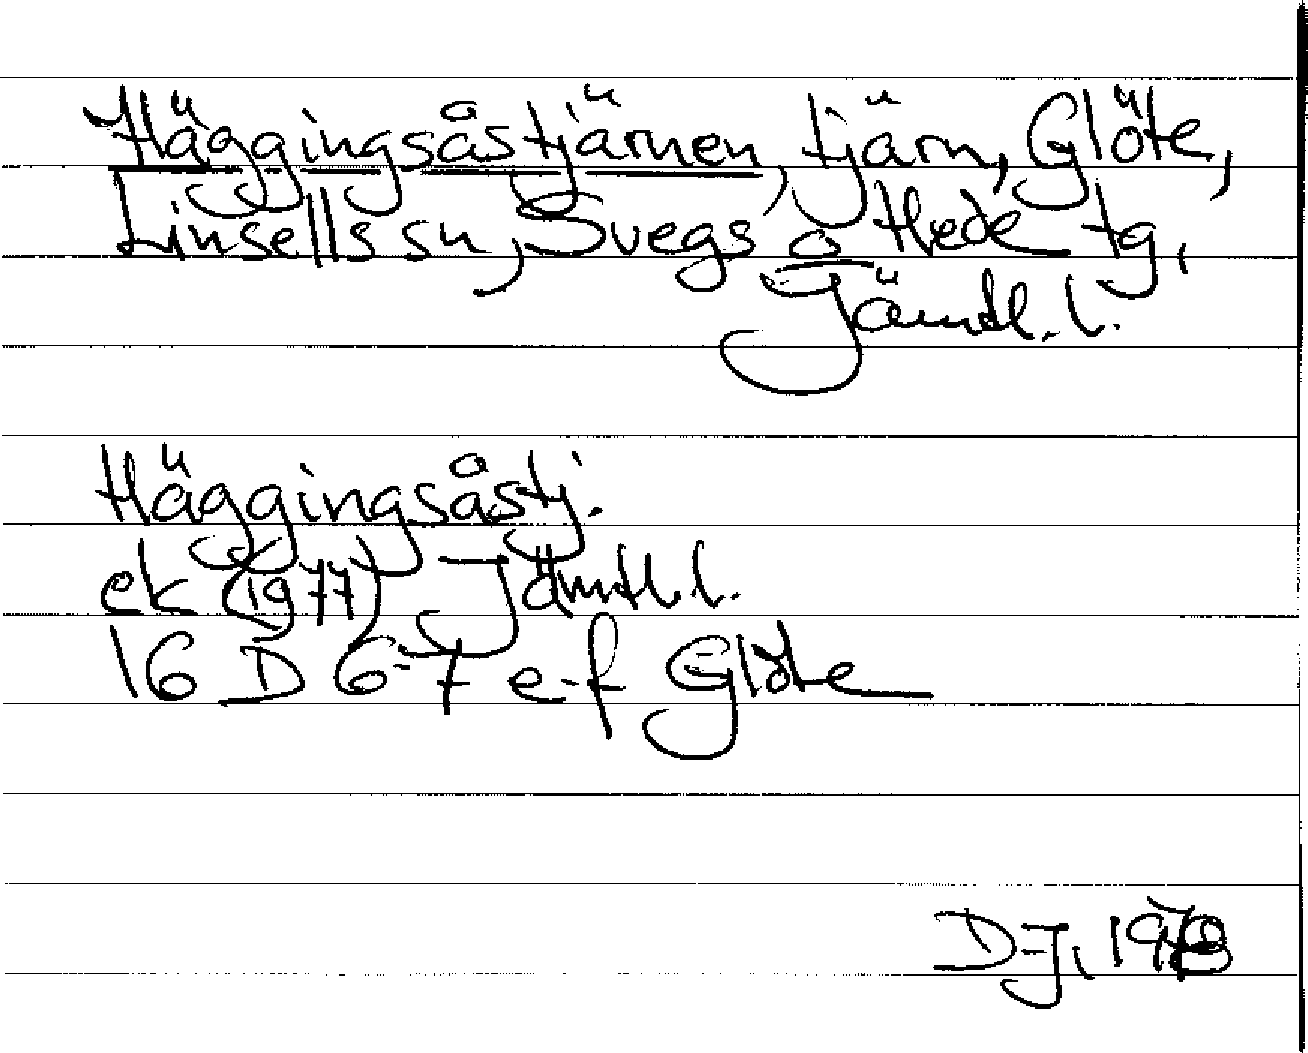 Häggingsåstjärnen, tjärn, Glöte,
Linsells sn, Svegs o Hede tg,
Jämtl. l.
Häggingsåstj.
ek (1977) Jämtl. l.
16 D 6-7 e-f Glöte
D-J, 1978